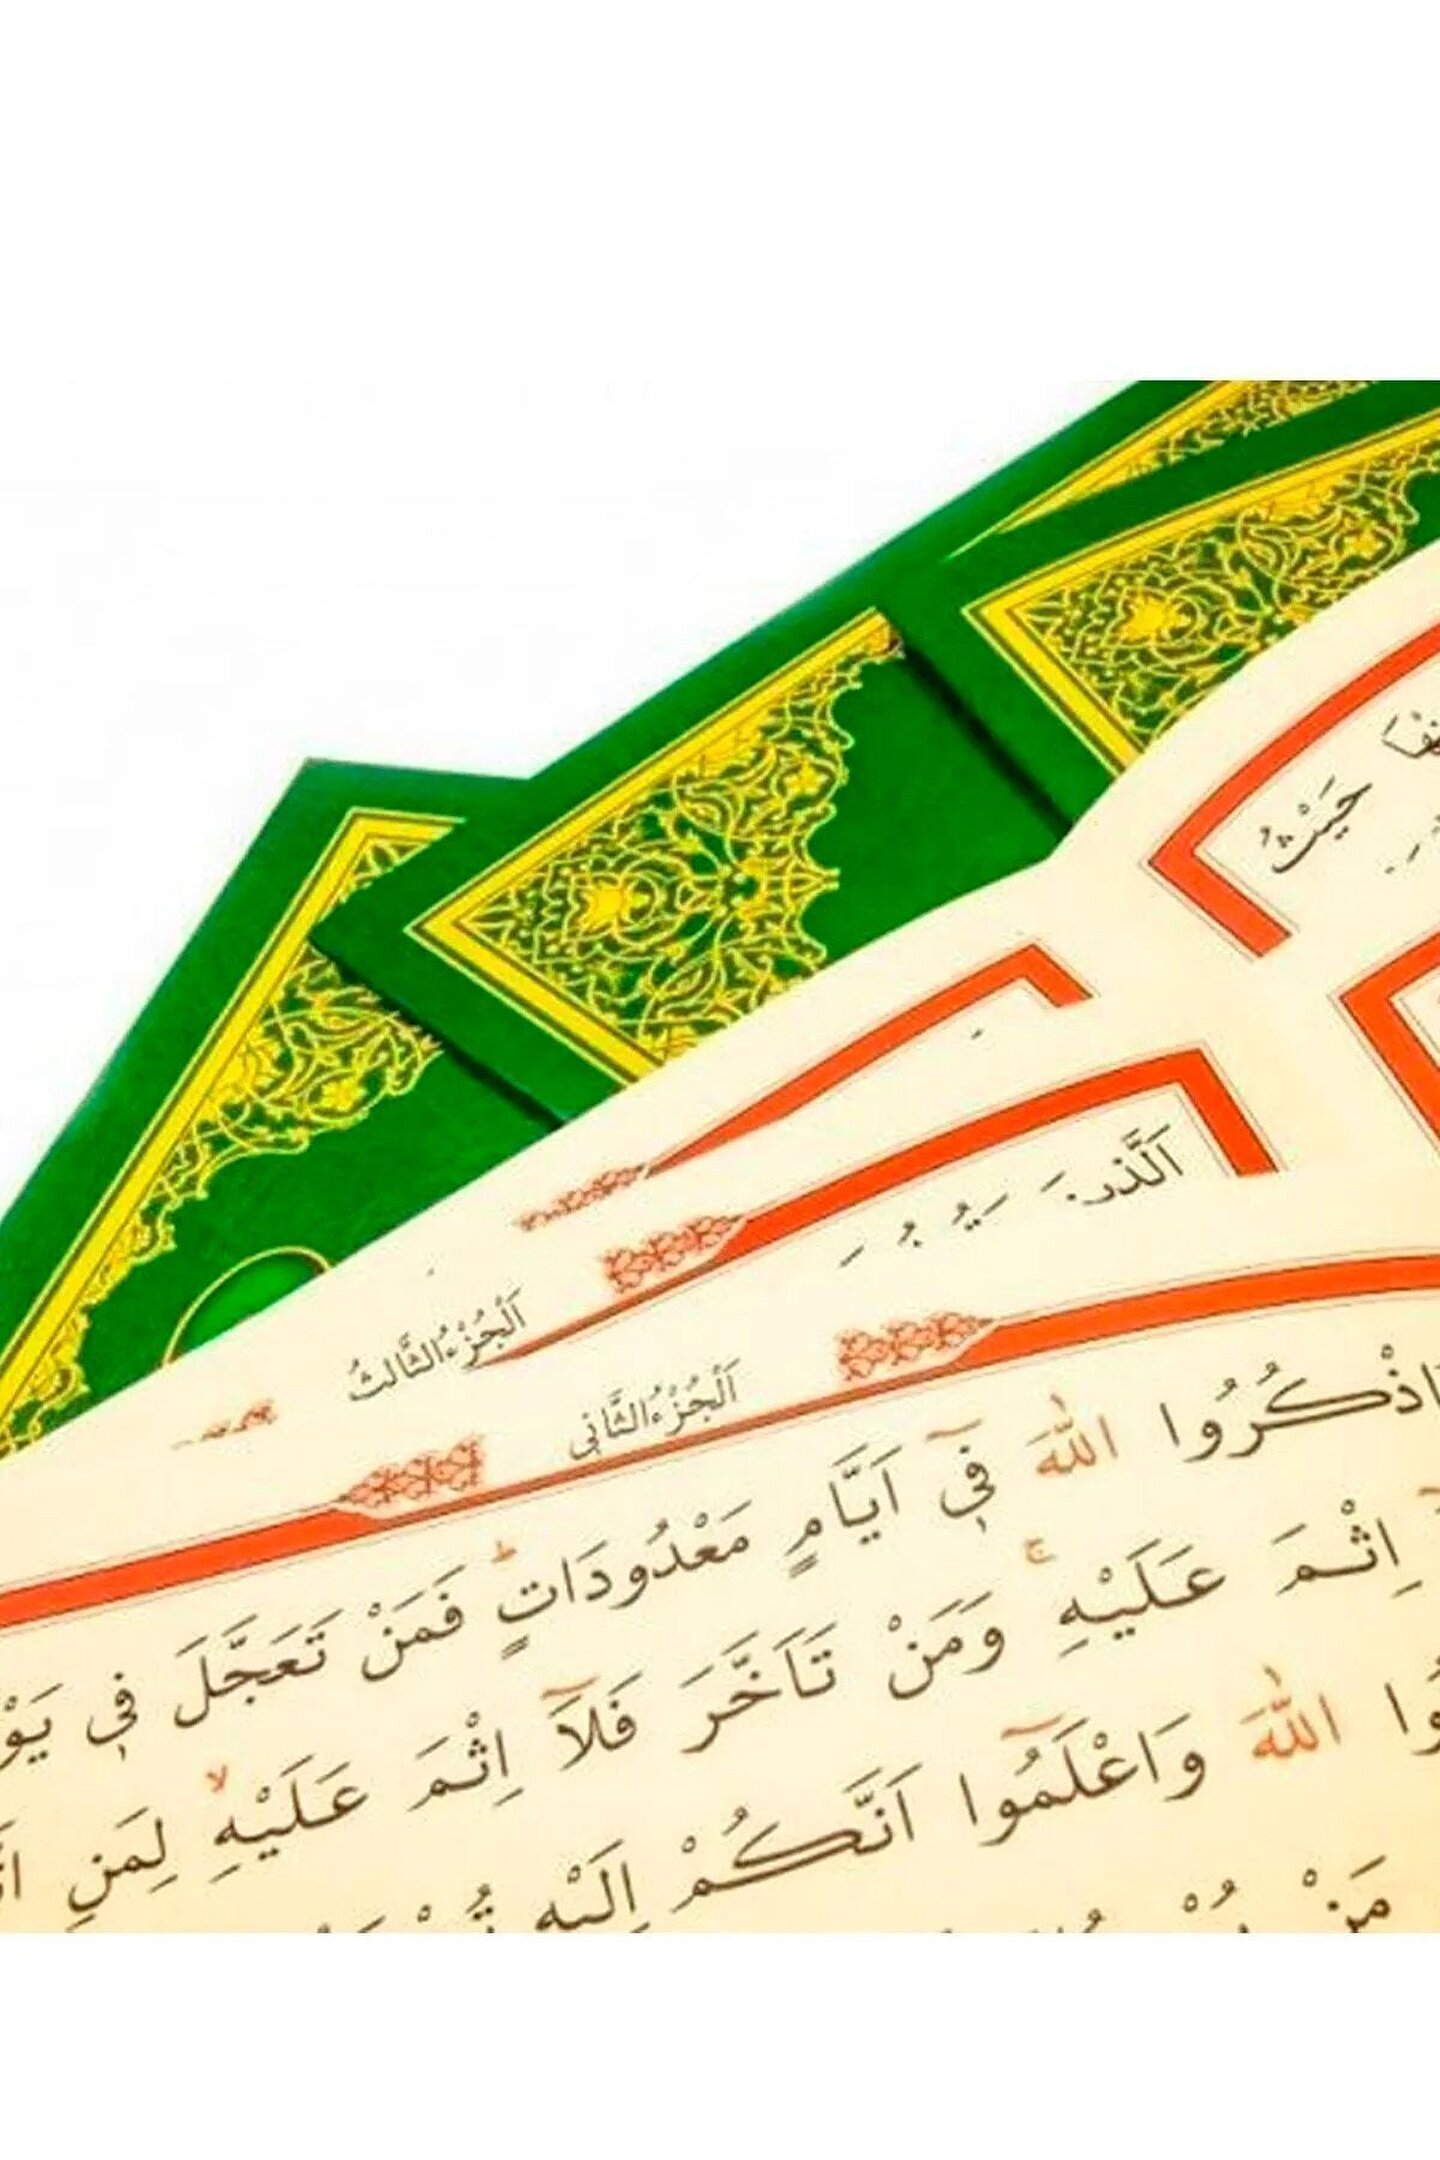 حَيْثُ
اَلْجُزْءُ الثَّالِثُ
اَلْجُزْءُ الثَّانِى
اذْكُرُوا اللّٰهَ فٖٓى اَيَّامٍ مَعْدُودَاتٍ ط فَمَنْ تَعَجَّلَ فٖى
اِثْمَ عَلَيْهِ ج وَمَنْ تَاَخَّرَ فَلَٓا اِثْمَ عَلَيْهِ لا لِمَنِ
اللّٰهَ وَاعْلَمُٓوا اَنَّكُمْ اِلَيْهِ
مَنْ